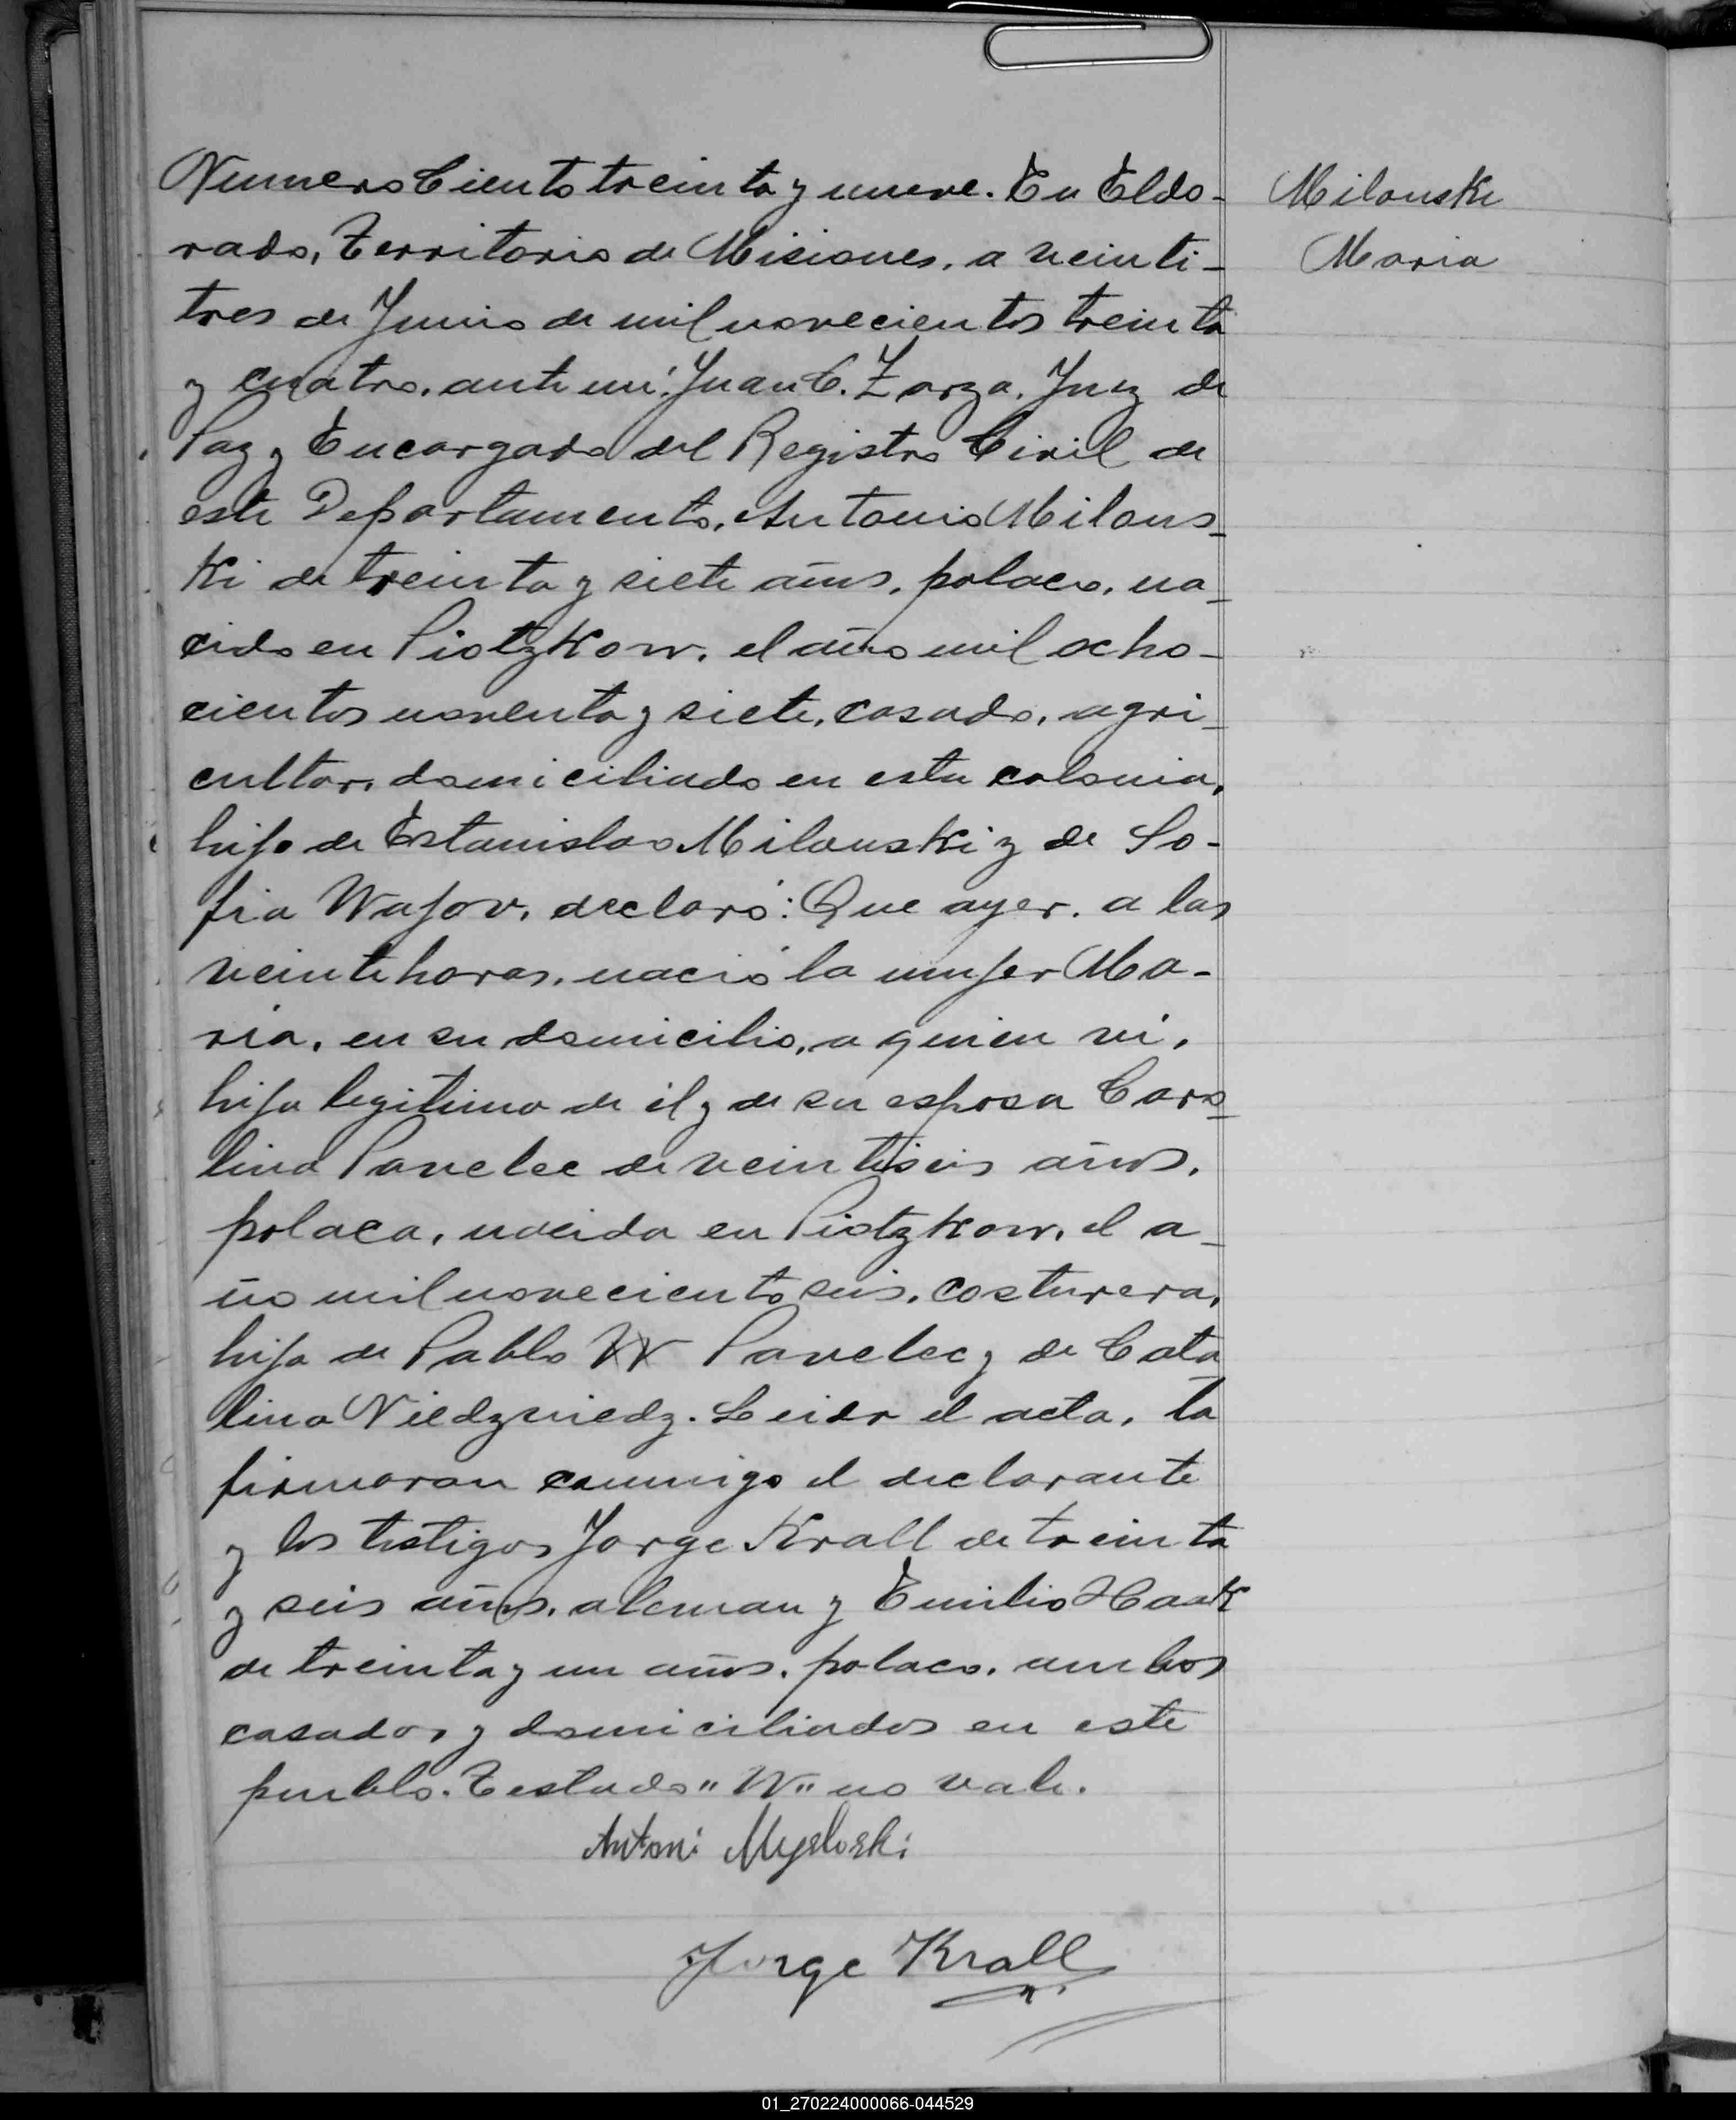 Numero Ciento treinta y nueve. En Eldo-
rado, Territorio de Misiones, a veinti-
tres de Junio de mil novecientos treinta
y cuatro, ante mí: Juan C. Zarza, Juez de
Paz y Encargado del Registro Civil de
este Departamento, Antonio Milous-
ki de treinta y siete años, polaco, na-
cido en Piotzkow, el año mil ocho-
cientos noventa y siete, casado, agri-
cultor, domiciliado en esta colonia,
hijo de Estanislao Milouski y de So-
fia Wajov, declaró: Que ayer, a las
veinte horas, nació la mujer Ma-
ria, en su domicilio, a quien vi,
hija legitima de él y de su esposa Caro-
lina Pavelec de veintiseis años,
polaca, nacida en Piotzkow, el a-
ño mil novecientos seis, costurera,
hija de Pablo W Pavelec y de Cata
lina Niedzviedz. Leida el acta, la
firmaron conmigo el declarante
y los testigos Jorge Krall de treinta
y seis años, aleman y Emilio Haak
de treinta y un años, polaco, ambos
casados y domiciliados en este
pueblo. Testado "W" no vale.
Antoni Mysloski
Jorge Krall
Milouski
Maria
01_270224000066-044529